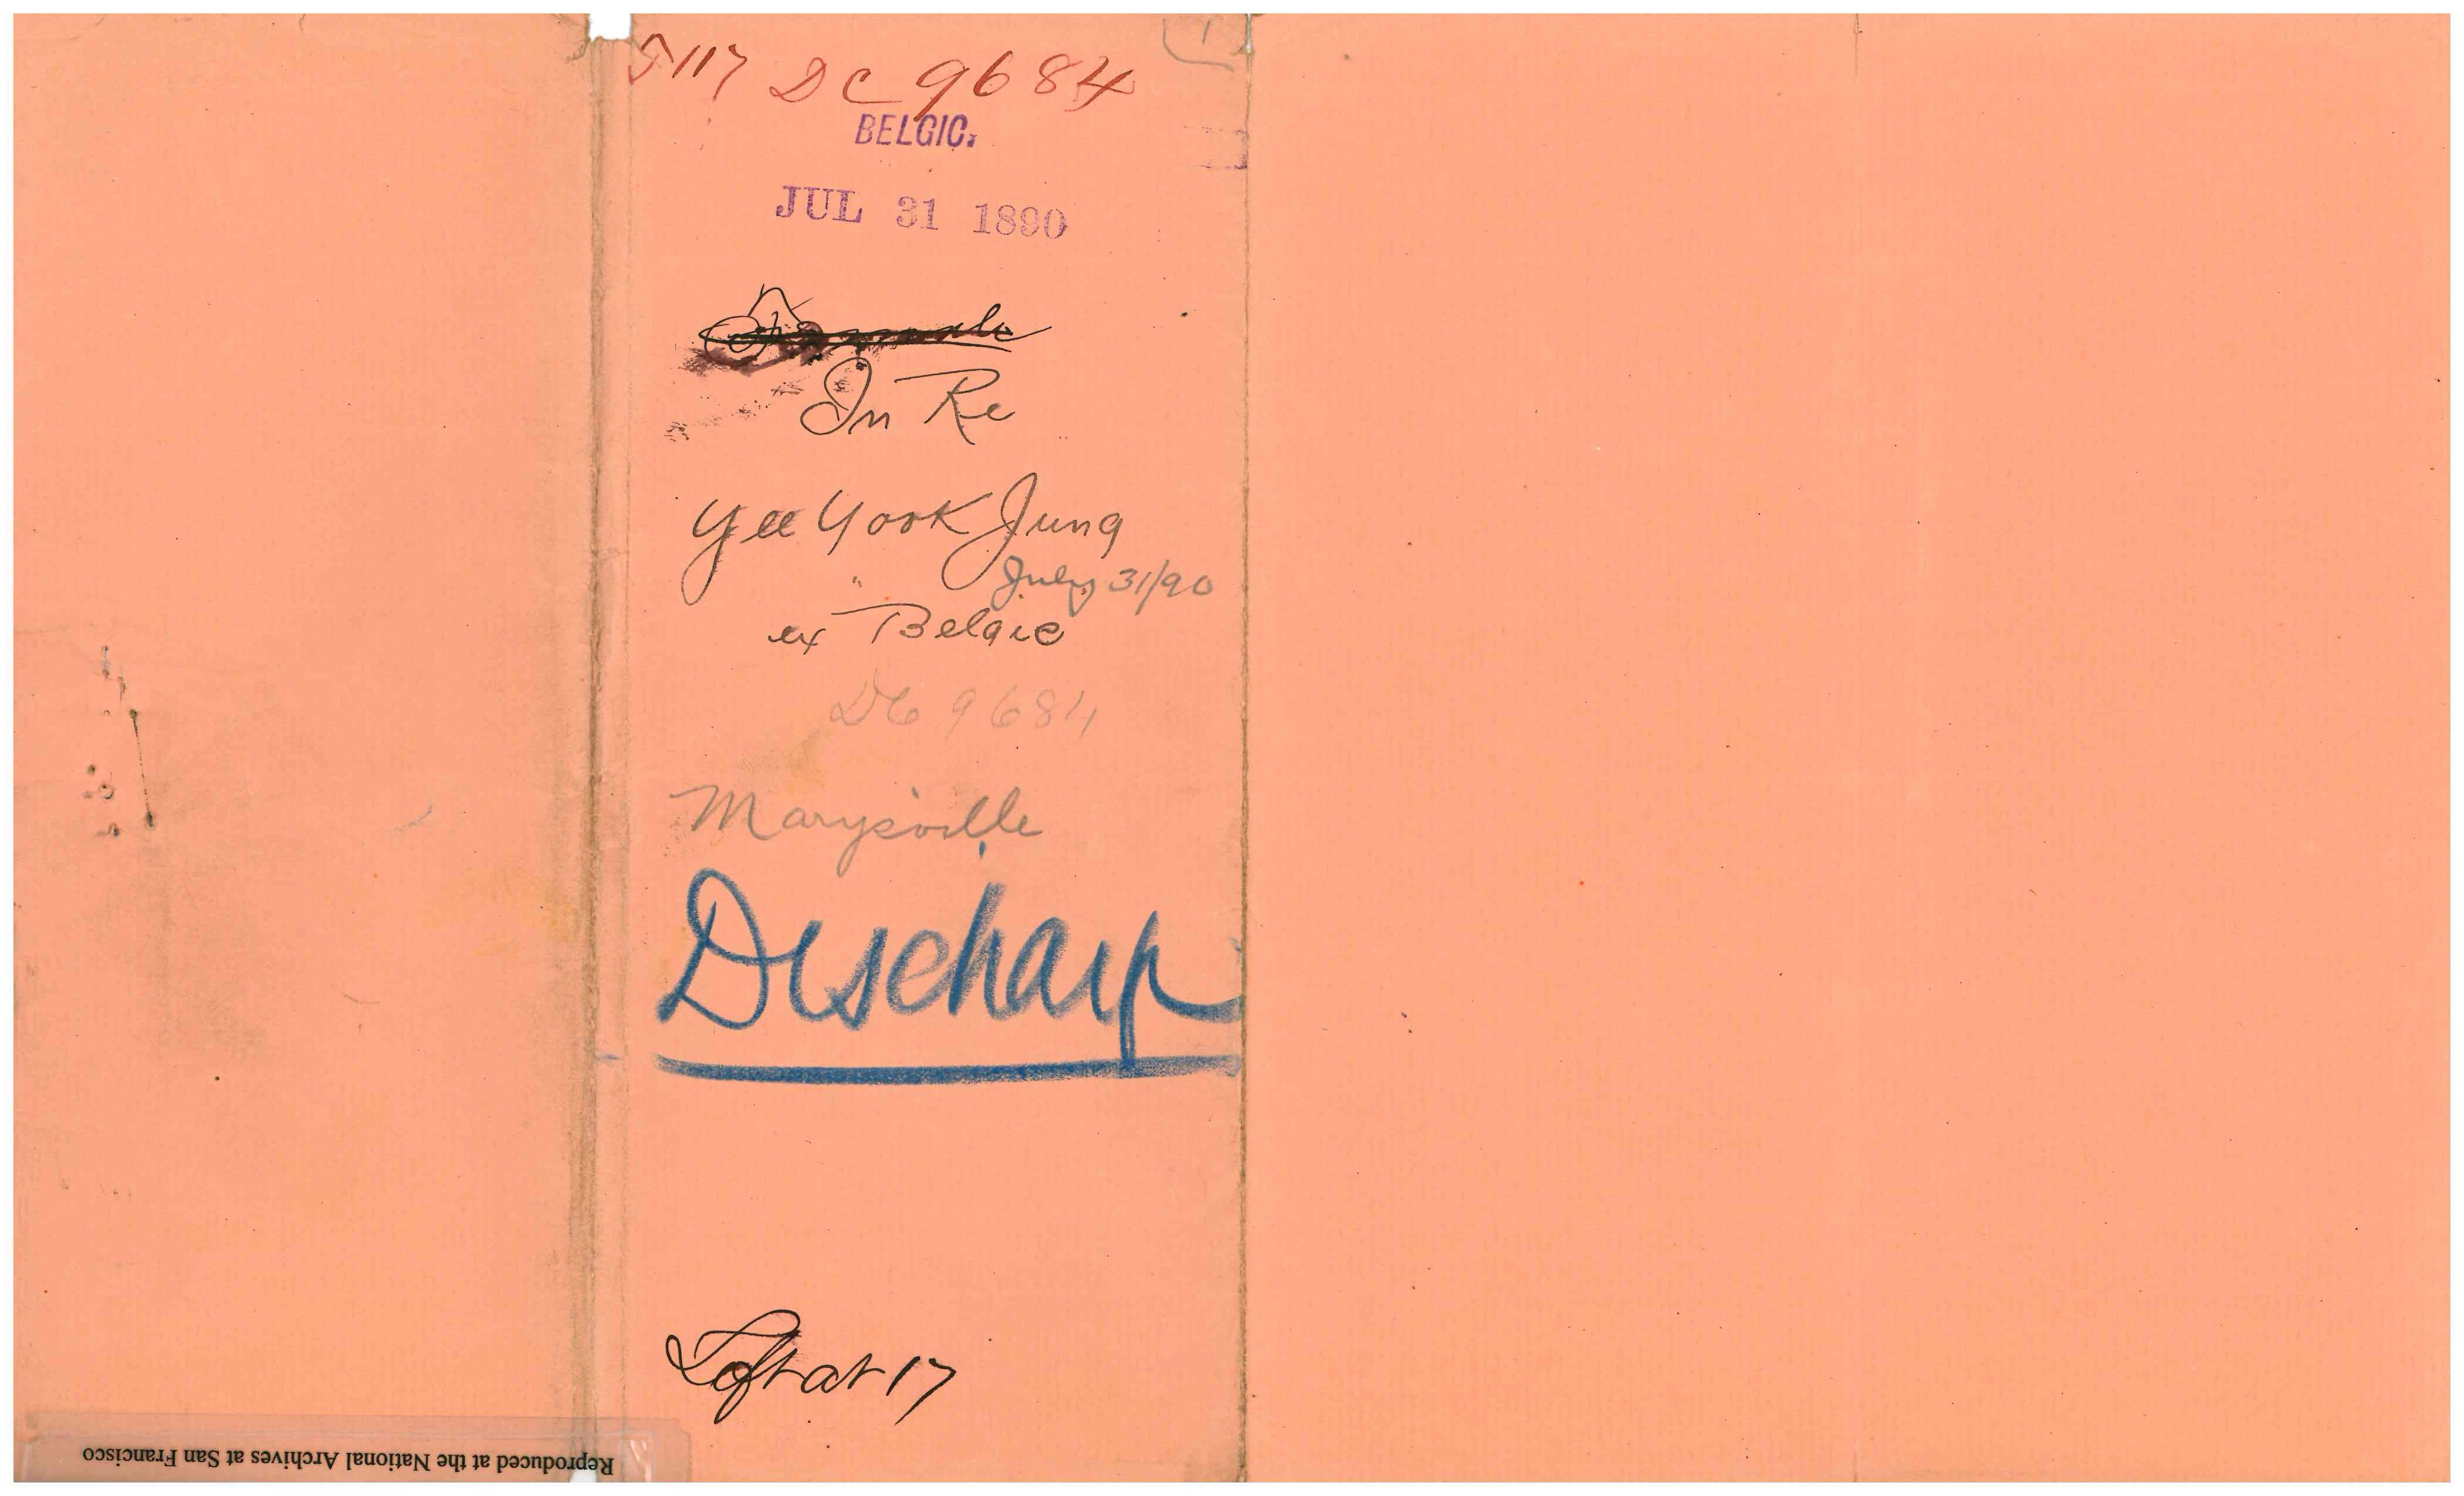 DC 9684
BELGIC.
JUL 31 1890
In Re
Yee Yook Jung
July 31/90
ex Belgic
DC 9684
Marysville
Discharge
Left at 17
Reproduced at the National Archives at San Francisco